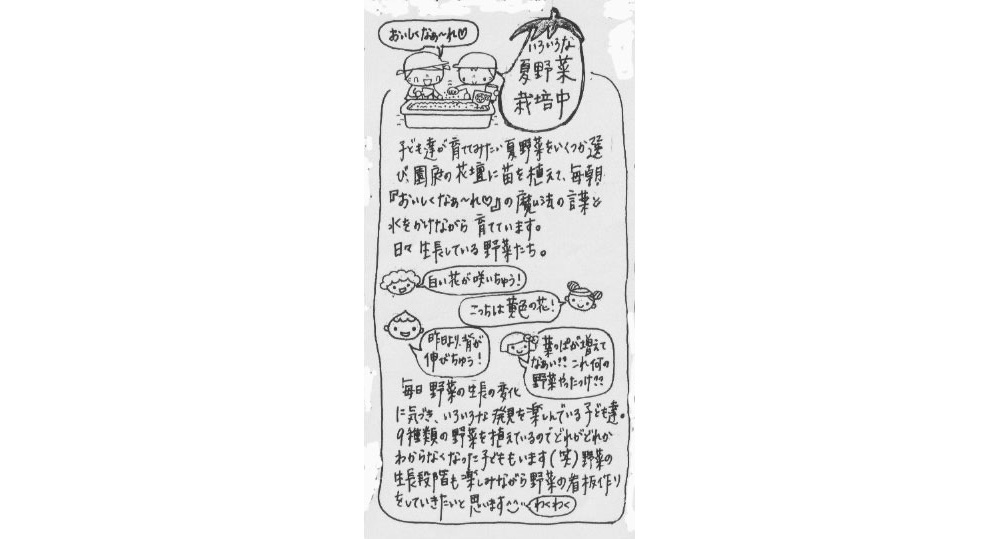 おいしくなぁ〜れ♡
いろいろな
夏野菜
栽培中
子ども達が育ててみたい夏野菜をいくつか選
び、園庭の花壇に苗を植えて、毎朝
『おいしくなぁ〜れ♡』の魔法の言葉と
水をかけながら育てています。
日々生長している野菜たち。
白い花が咲いちゅう！
こっちは黄色の花！
昨日より、背が
伸びちゅう！
葉っぱが増えて
なぁい!? これ何の
野菜やったっけ??
毎日野菜の生長の変化
に気づき、いろいろな発見を楽しんでいる子ども達。
9種類の野菜を植えているのでどれがどれか
わからなくなった子どももいます(笑)野菜の
生長段階も楽しみながら野菜の看板作り
をしていきたいと思います^^
わくわく